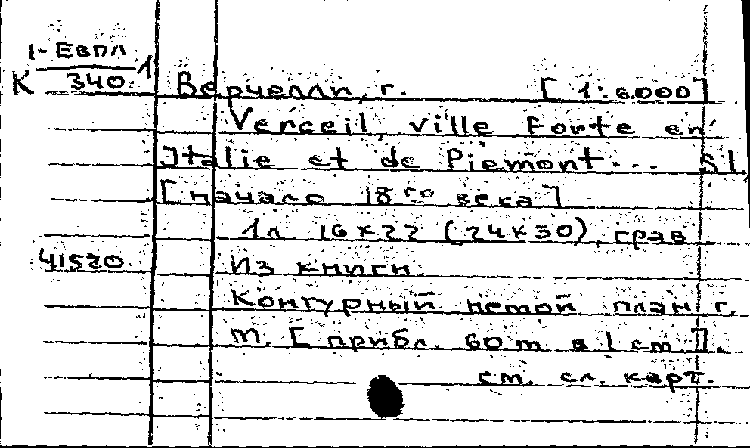 1-Евпл
К 340 1
Верчелли, г. [1:6000]
Verceil, ville forte en
Italie et de Piemont... S.l,
[начало 18го века]
1л 16×22 (24×30), грав
41520
Из книги.
Контурный немой план г.
М. [прибл. 60 m в 1 cm].
см. сл. карт.